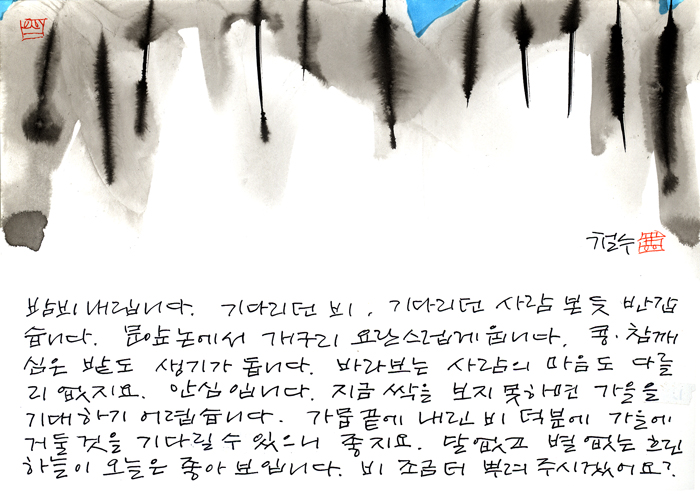 철수
밤비 내립니다. 기다리던 비, 기다리던 사람 본 듯 반갑
습니다. 문앞 논에서 개구리 요란스럽게 웁니다. 콩·참깨
심은 밭도 생기가 돕니다. 바라보는 사람의 마음도 다를
리 없지요. 안심입니다. 지금 싹을 보지 못하면 가을을
기대하기 어렵습니다. 가뭄끝에 내린 비 덕분에 가을에
거둘것을 기다릴 수 있으니 좋지요. 달 없고 별 없는 흐린
하늘이 오늘은 좋아 보입니다. 비 조금 더 뿌려 주시겠어요?